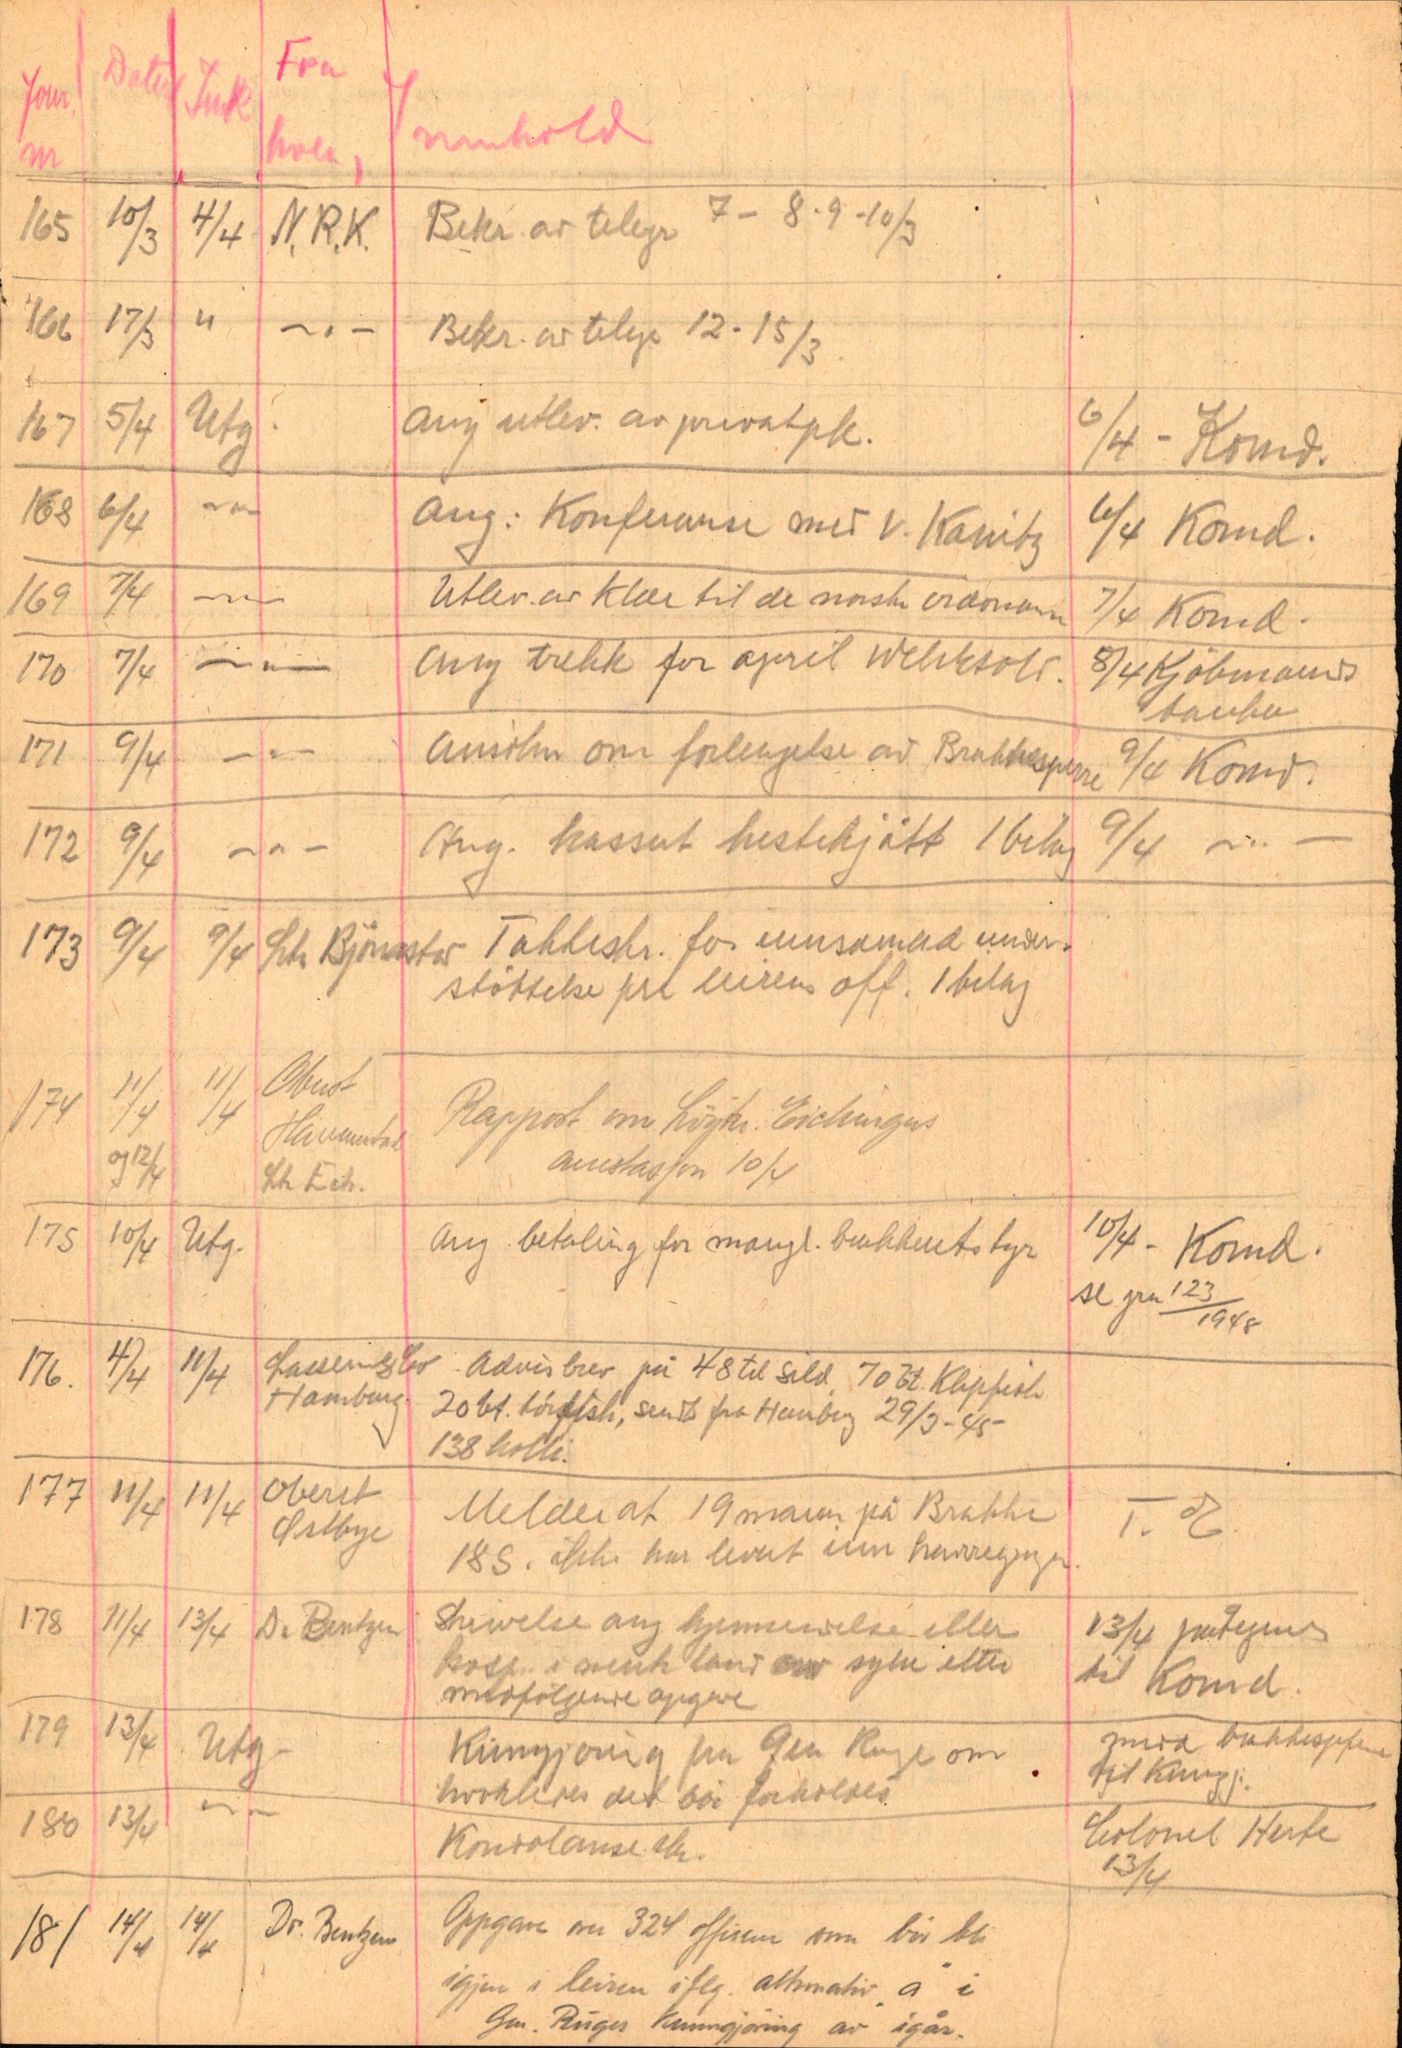 Jour. nr Datum Innk Fra hvem, Innhold
165 10/3 4/4 N.R.K. Bekr. av telegr 7 - 8 - 9 - 10/3
166 17/3 " - " - Bekr. av telegr 12 - 15/3.
167 5/4 Utg. Ang utlev. av privatpk. 6/4 - Komd.
168 6/4 - " - Ang: Konferanse med v. Kanitz 6/4 Komd.
169 7/4 - " - Utlev. av klær til de norske ordonans 7/4 Komd.
170 7/4 - " - Ang trekk for april Wehrsold. 8/4 Kjöbmands
banken
171 9/4 - " - Ansökn om forlengelse av Brakkesperre 9/4 Komd.
172 9/4 - " - Ang. kassert hestekjött 1 bilag 9/4 - " -
173 9/4 9/4 Lt. Björnstar Takkeskr. for innsamled under-
stöttelse fra leirens off. 1 bilag
174 11/4 11/4 Oberst
og 12/4 Lt. Ech. Rapport om Löjtn. Eichingers
arrestasjon 10/4
175 10/4 Utg. Ang betaling for mangl. brakkeutstyr 10/4 - Komd.
se jrn 123/1945
176. 4/4 11/4 Hamburg. Advisbrev på 48 til sild, 70 bt. Klippfish
20 bt. törfish, sendt fra Hamburg 29/3-45-
138 kolli.
177 11/4 11/4 Oberst
Østbye Melder at 19 mann på Brakke
18S. ikke har levert inn
178 11/4 13/4 Dr Bentzen Skrivelse ang hjemsendelse eller
hosp. i nevtr. land av syke etter
medfölgende opgave 13/4 påtegnes
til Komd.
179 13/4 Utg - Kunngjöring fra Gen Ruge om
hvorledes det bör forholdes
til Kunngj.
180 13/4 - " - Kondolanse skr. Colonel Herte
13/4
181 14/4 14/4 Dr. Bentzen Oppgave over 324 offiserer som bör bli
igjen i leiren iflg. alternativ "a" i
Gen. Ruges Kunngjöring av igår.